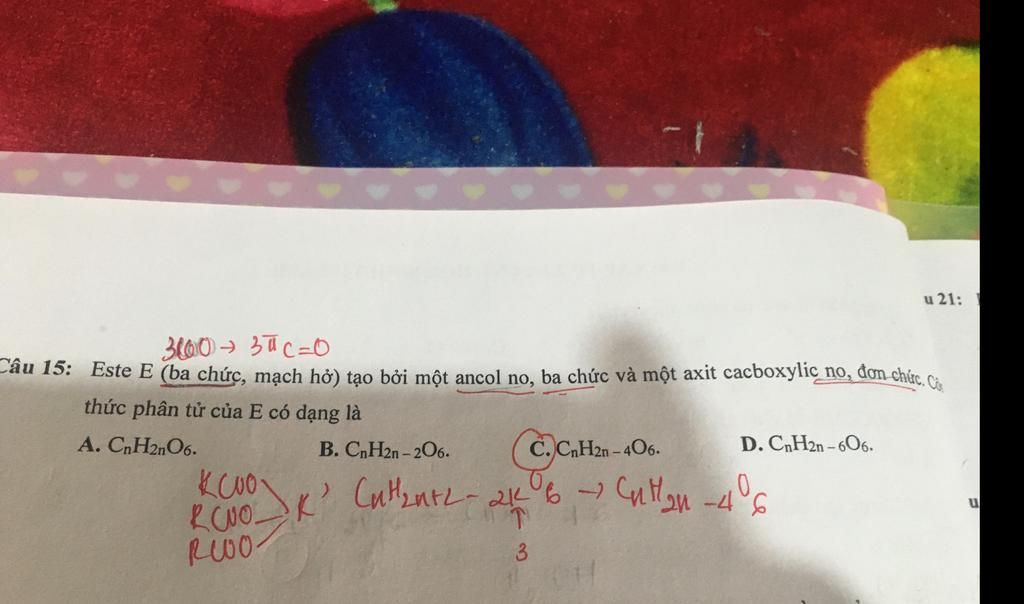 u 21:
3COO → 3π C=O
Câu 15: Este E (ba chức, mạch hở) tạo bởi một ancol no, ba chức và một axit cacboxylic no, đơn chức.
thức phân tử của E có dạng là
A. CnH2nO6. B. CnH2n – 2O6. C. CnH2n – 4O6. D. CnH2n – 6O6.
RCOO
RCOO R' CnH2n+2 - 2k O6 → CnH2n - 4 O6
RCOO
3